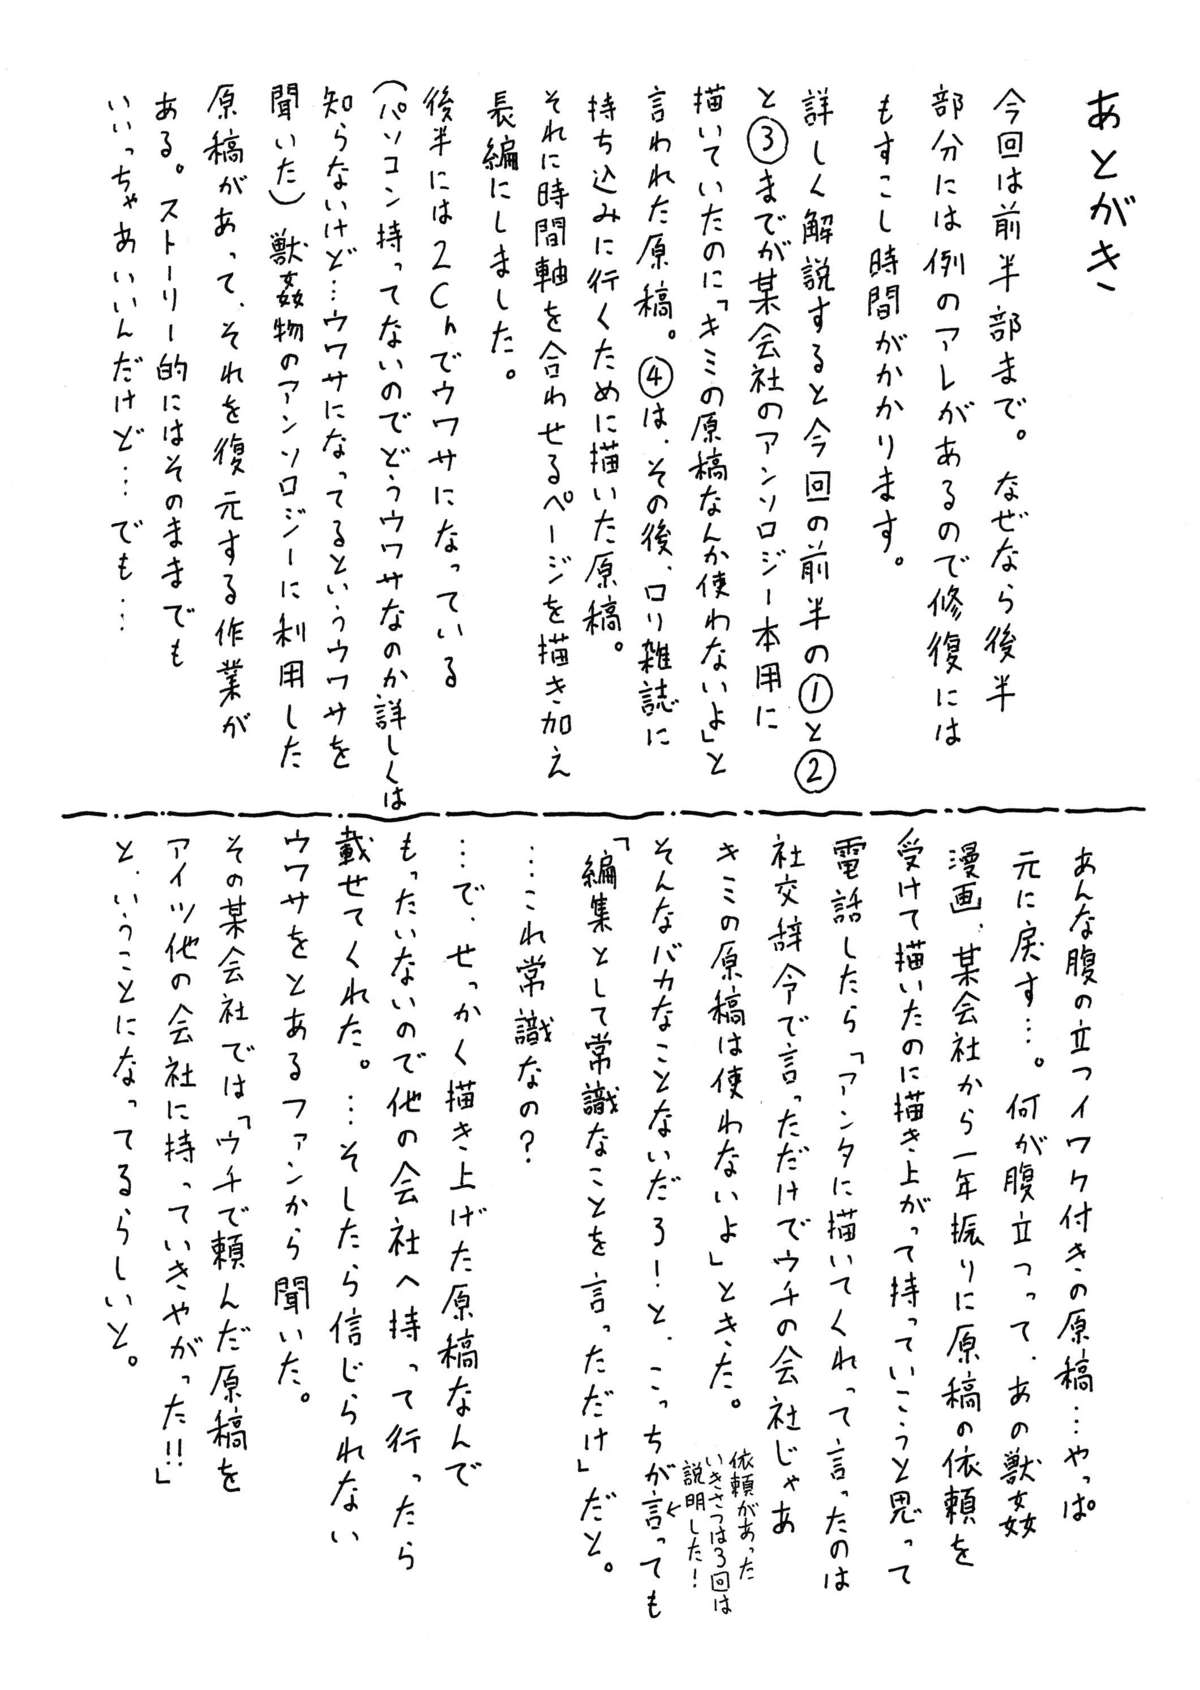 あとがき
今回は前半部まで。なぜなら後半
部分には例のアレがあるので修復には
もすこし時間がかかります。
詳しく解説すると今回の前半の①と②
と③までが某会社のアンソロジー本用に
描いていたのに「キミの原稿なんか使わないよ」と
言われた原稿。④は、その後、ロリ雑誌に
持ち込みに行くために描いた原稿。
それに時間軸を合わせるページを描き加え
長編にしました。
後半には2Chでウワサになっている
(パソコン持ってないのでどうウワサなのか詳しくは
知らないけど…ウワサになってるというウワサを
聞いた)獣姦物のアンソロジーに利用した
原稿があって、それを復元する作業が
ある。ストーリー的にはそのままでも
いいっちゃあいいんだけど…でも…
あんな腹の立つイワク付きの原稿…やっぱ
元に戻す…。何が腹立つって、あの獣姦
漫画、某会社から一年振りに原稿の依頼を
受けて描いたのに描き上がって持っていこうと思って
電話したら「アンタに描いてくれって言ったのは
社交辞令で言っただけでウチの会社じゃあ
キミの原稿は使わないよ」ときた。
依頼があった
いきさつは3回は
説明した!
そんなバカなことないだろ!と、こっちが言っても
「編集として常識なことを言っただけ」だと。
…これ常識なの?
…で、せっかく描き上げた原稿なんで
もったいないので他の会社へ持って行ったら
載せてくれた。…そしたら信じられない
ウワサをとあるファンから聞いた。
その某会社では「ウチで頼んだ原稿を
アイツ他の会社に持っていきやがった!!」
と、いうことになってるらしいと。